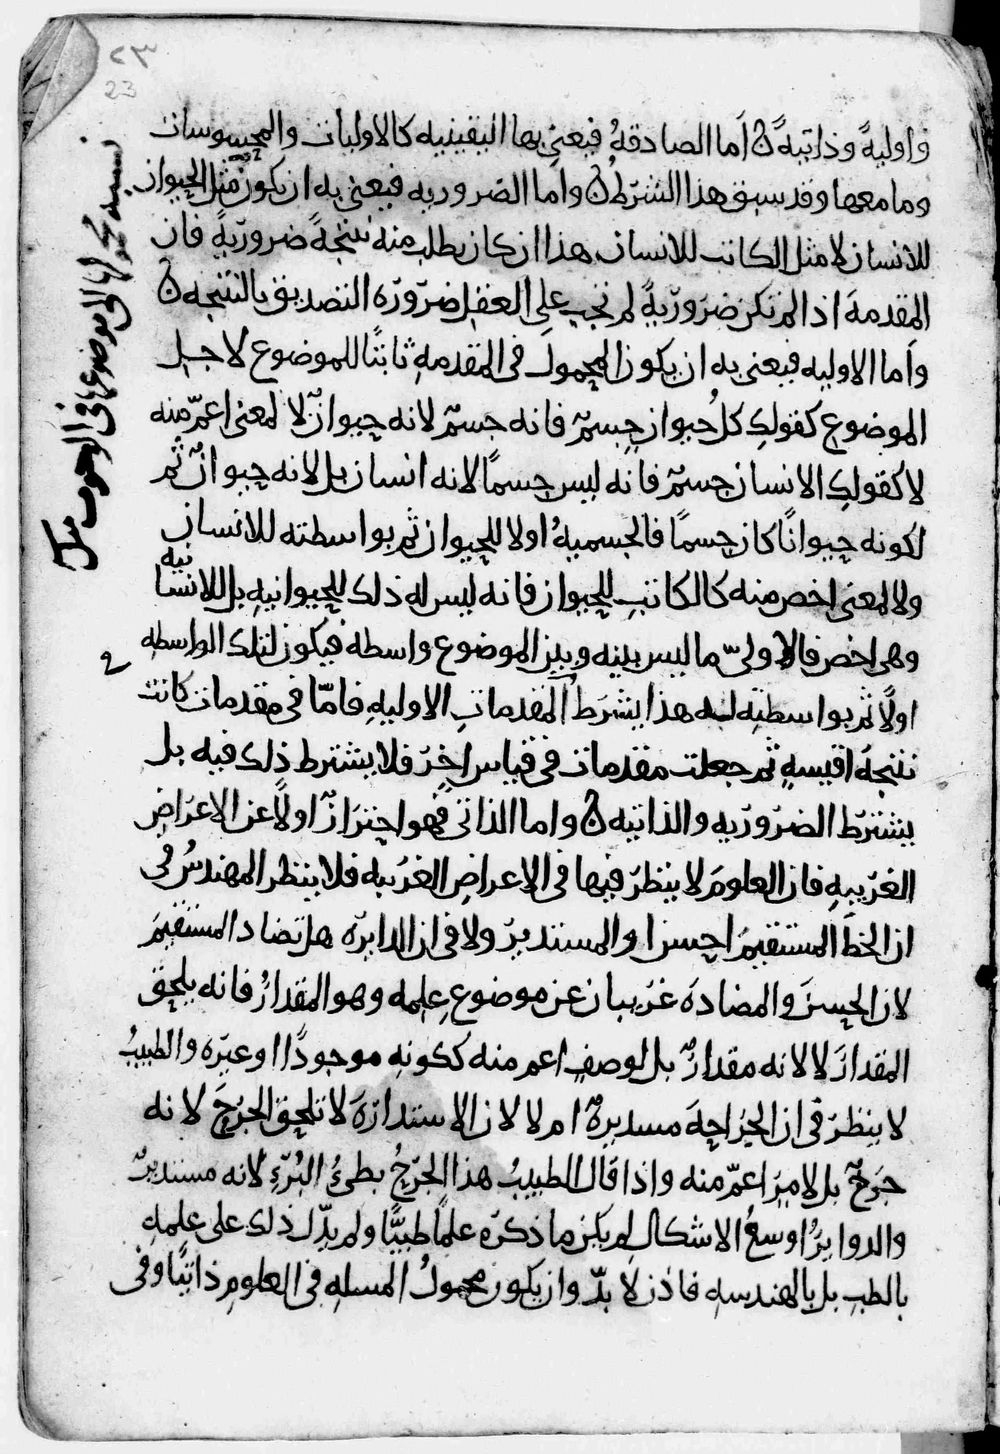 ٢٣
23
واوليةً وذاتيةً ن اما الصادقةُ فيعنى بها اليقينيه كالاوليات والمحسوسات
وما معها وقد سبق هذا الشرط ن واما الضروريه فيعنى به ان يكون مثل الحيوان
للانسان لا مثل الكاتب للانسان هذا ان كان يطلب منه نتيجةً ضروريةً فان
المقدمة اذا لم تكن ضروريةً لم تجب على العقل ضرورة التصديق بالنتيجه ن
واما الاوليه فيعنى به ان يكون المحمول فى المقدمة ثابتًا للموضوع لاجل
الموضوع كقولك كل حيوان جسمٌ فانه جسمٌ لانه حيوانٌ لا لمعنى اعمّ منه
لا كقولك الانسان جسمٌ فانه ليس جسمًا لانه انسان بل لانه حيوانٌ ثم
لكونه حيوانًا كان جسمًا فالجسميةُ اولا للحيوان ثم بواسطته للانسان
ولا لمعنى اخص منه كالكاتب للحيوان فانه ليس له ذلك للحيوانيه بل للانسانيه
وهى اخص فالاولىّ ما ليس بينه وبين الموضوع واسطه فيكون لتلك الواسطه
اولًا ثم بواسطته له هذا يشترط المقدمات الاوليه فامّا فى مقدمات كانت
نتيجة اقيسةٍ ثم جعلت مقدمات فى قياس اخر فلا يشترط ذلك فيه بل
يشترط الضروريه والذاتيه ن واما الذاتى فهو احترازٌ اولًا عن الاعراض
الغريبه فان العلوم لا ينظر فيها فى الاعراض الغريبه فلا ينظر المهندسُ فى
ان الخط المستقيم احسن او المستدير ولا فى ان الدايره هل تضاد المستقيم
لان الحسن والمضادة غريبان عن موضوع علمه وهو المقدارُ فانه يلحق
المقدارَ لا لانه مقدارٌ بل لوصفٍ اعم منه ككونه موجودًا او غيره والطبيبُ
لا ينظر فى ان الجراحة مسديرةٌ ام لا لان الاستدارة لا تلحق الجرح لانه
جرحٌ بل لامرٍ اعمّ منه واذا قال الطبيبُ هذا الجرحُ بطىءُ البُرءِ لانه مستديرٌ
والدوايرُ اوسعُ الاشكال لم يكن ما ذكره علمًا طبيًّا ولم يدّل ذلك على علمه
بالطب بل بالهندسه فاذن لا بدّ وان يكون محمولُ المسله فى العلوم ذاتيًّا وفى